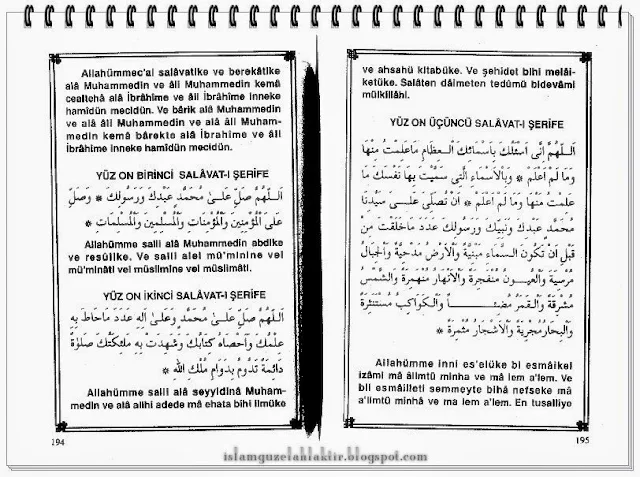 Allahümmec'al salâvatike ve berekâtike
alâ Muhammedin ve âli Muhammedin kemâ
cealtehâ alâ İbrâhime ve âli İbrâhime inneke
hamîdün mecidün. Ve bârik alâ Muhammedin
ve alâ âli Muhammedin ve alâ âli Muham-
medin kemâ bârekte alâ İbrahime ve âli
İbrâhime inneke hamîdün mecidün.
YÜZ ON BİRİNCİ SALÂVAT-I ŞERİFE
اَللّٰهُمَّ صَلِّ عَلٰى مُحَمَّدٍ عَبْدِكَ وَرَسُولِكَ * وَصَلِّ
عَلَى الْمُؤْمِنِينَ وَالْمُؤْمِنَاتِ وَالْمُسْلِمِينَ وَالْمُسْلِمَاتِ *
Allahümme salli alâ Muhammedin abdike
ve resûlike. Ve salli alel mü'minine vel
mü'minâti vel müslimîne vel müslimâti.
YÜZ ON İKİNCİ SALÂVAT-I ŞERİFE
اَللّٰهُمَّ صَلِّ عَلٰى مُحَمَّدٍ وَعَلٰى اٰلِهِ عَدَدَ مَااَحَاطَ بِهِ
عِلْمُكَ وَاَحْصَاهُ كِتَابُكَ وَشَهِدَتْ بِهِ مَلٰئِكَتُكَ صَلٰوةً
دَائِمَةً تَدُومُ بِدَوَامِ مُلْكِ اللّٰهِ *
Allahümme salli alâ seyyidinâ Muham-
medin ve alâ alihi adede mâ ehata bihi ilmüke
194
ve ahsahü kitabüke. Ve şehidet bihi melâi-
ketüke. Salâten dâimeten tedûmü bidevâmi
mülkillâhi.
YÜZ ON ÜÇÜNCÜ SALÂVAT-I ŞERİFE
اَللّٰهُمَّ اِنِّى اَسْئَلُكَ بِاَسْمَائِكَ الْعِظَامِ مَاعَلِمْتُ مِنْهَا
وَمَا لَمْ اَعْلَمْ * وَبِالْاَسْمَاءِ الَّتِى سَمَّيْتَ بِهَا نَفْسَكَ مَا
عَلِمْتُ مِنْهَا وَمَا لَمْ اَعْلَمْ * اَنْ تُصَلِّىَ عَلٰى سَيِّدِنَا
مُحَمَّدٍ عَبْدِكَ وَنَبِيِّكَ وَرَسُولِكَ عَدَدَ مَاخَلَقْتَ مِنْ
قَبْلِ اَنْ تَكُونَ السَّمَاءُ مَبْنِيَّةً وَالْاَرْضُ مَدْحِيَّةً وَالْجِبَالُ
مُرْسِيَةً وَالْعُيُونُ مُنْفَجِرَةً وَالْاَنْهَارُ مُنْهَمِرَةً وَالشَّمْسُ
مُشْرِقَةً وَالْقَمَرُ مُضِيئًا وَالْكَوَاكِبُ مُسْتَنِيرَةً
وَالْبِحَارُ مُجْرِيَةً وَالْاَشْجَارُ مُثْمِرَةً *
Allahümme inni es'elüke bi esmâikel
izâmi mâ âlimtü minha ve mâ lem a'lem. Ve
bil esmâilleti semmeyte bihâ nefseke mâ
a'limtü minhâ ve ma lem a'lem. En tusalliye
195
islamguzelahlaktir.blogspot.com